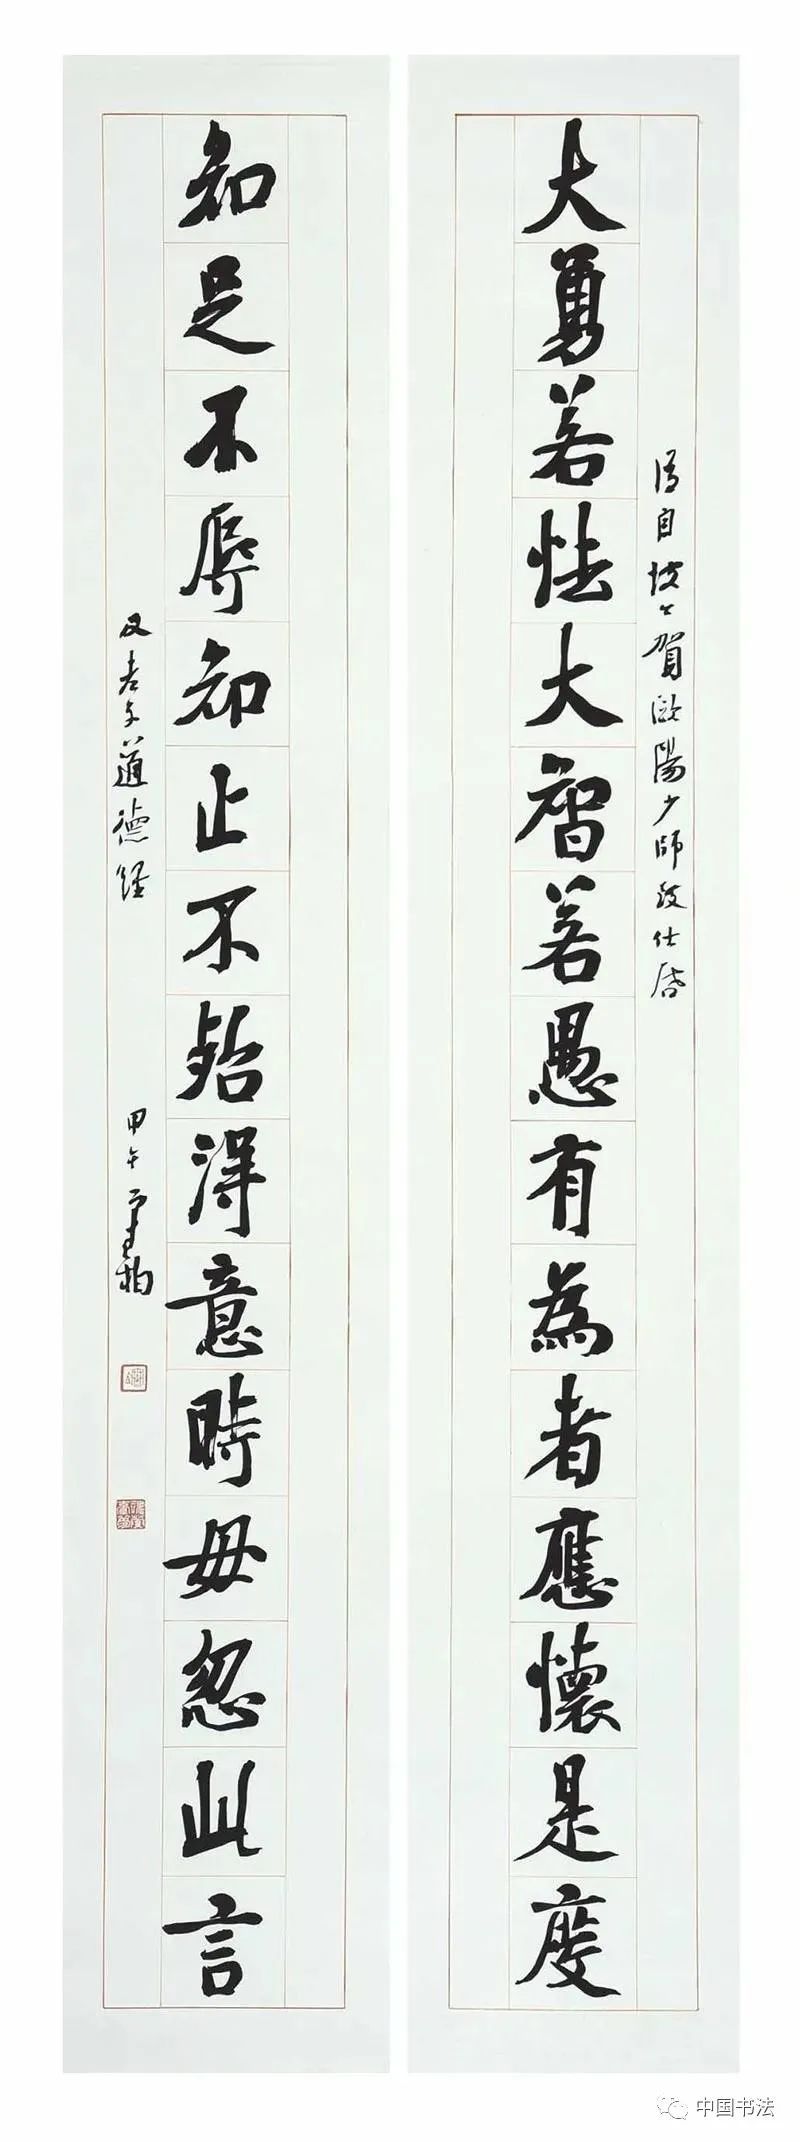 得自坡公賀歐陽少師致仕啓
大勇若怯大智若愚有為者應懷是度
知足不辱知止不殆得意時毋忽此言
及老子道德經
甲午
中国书法